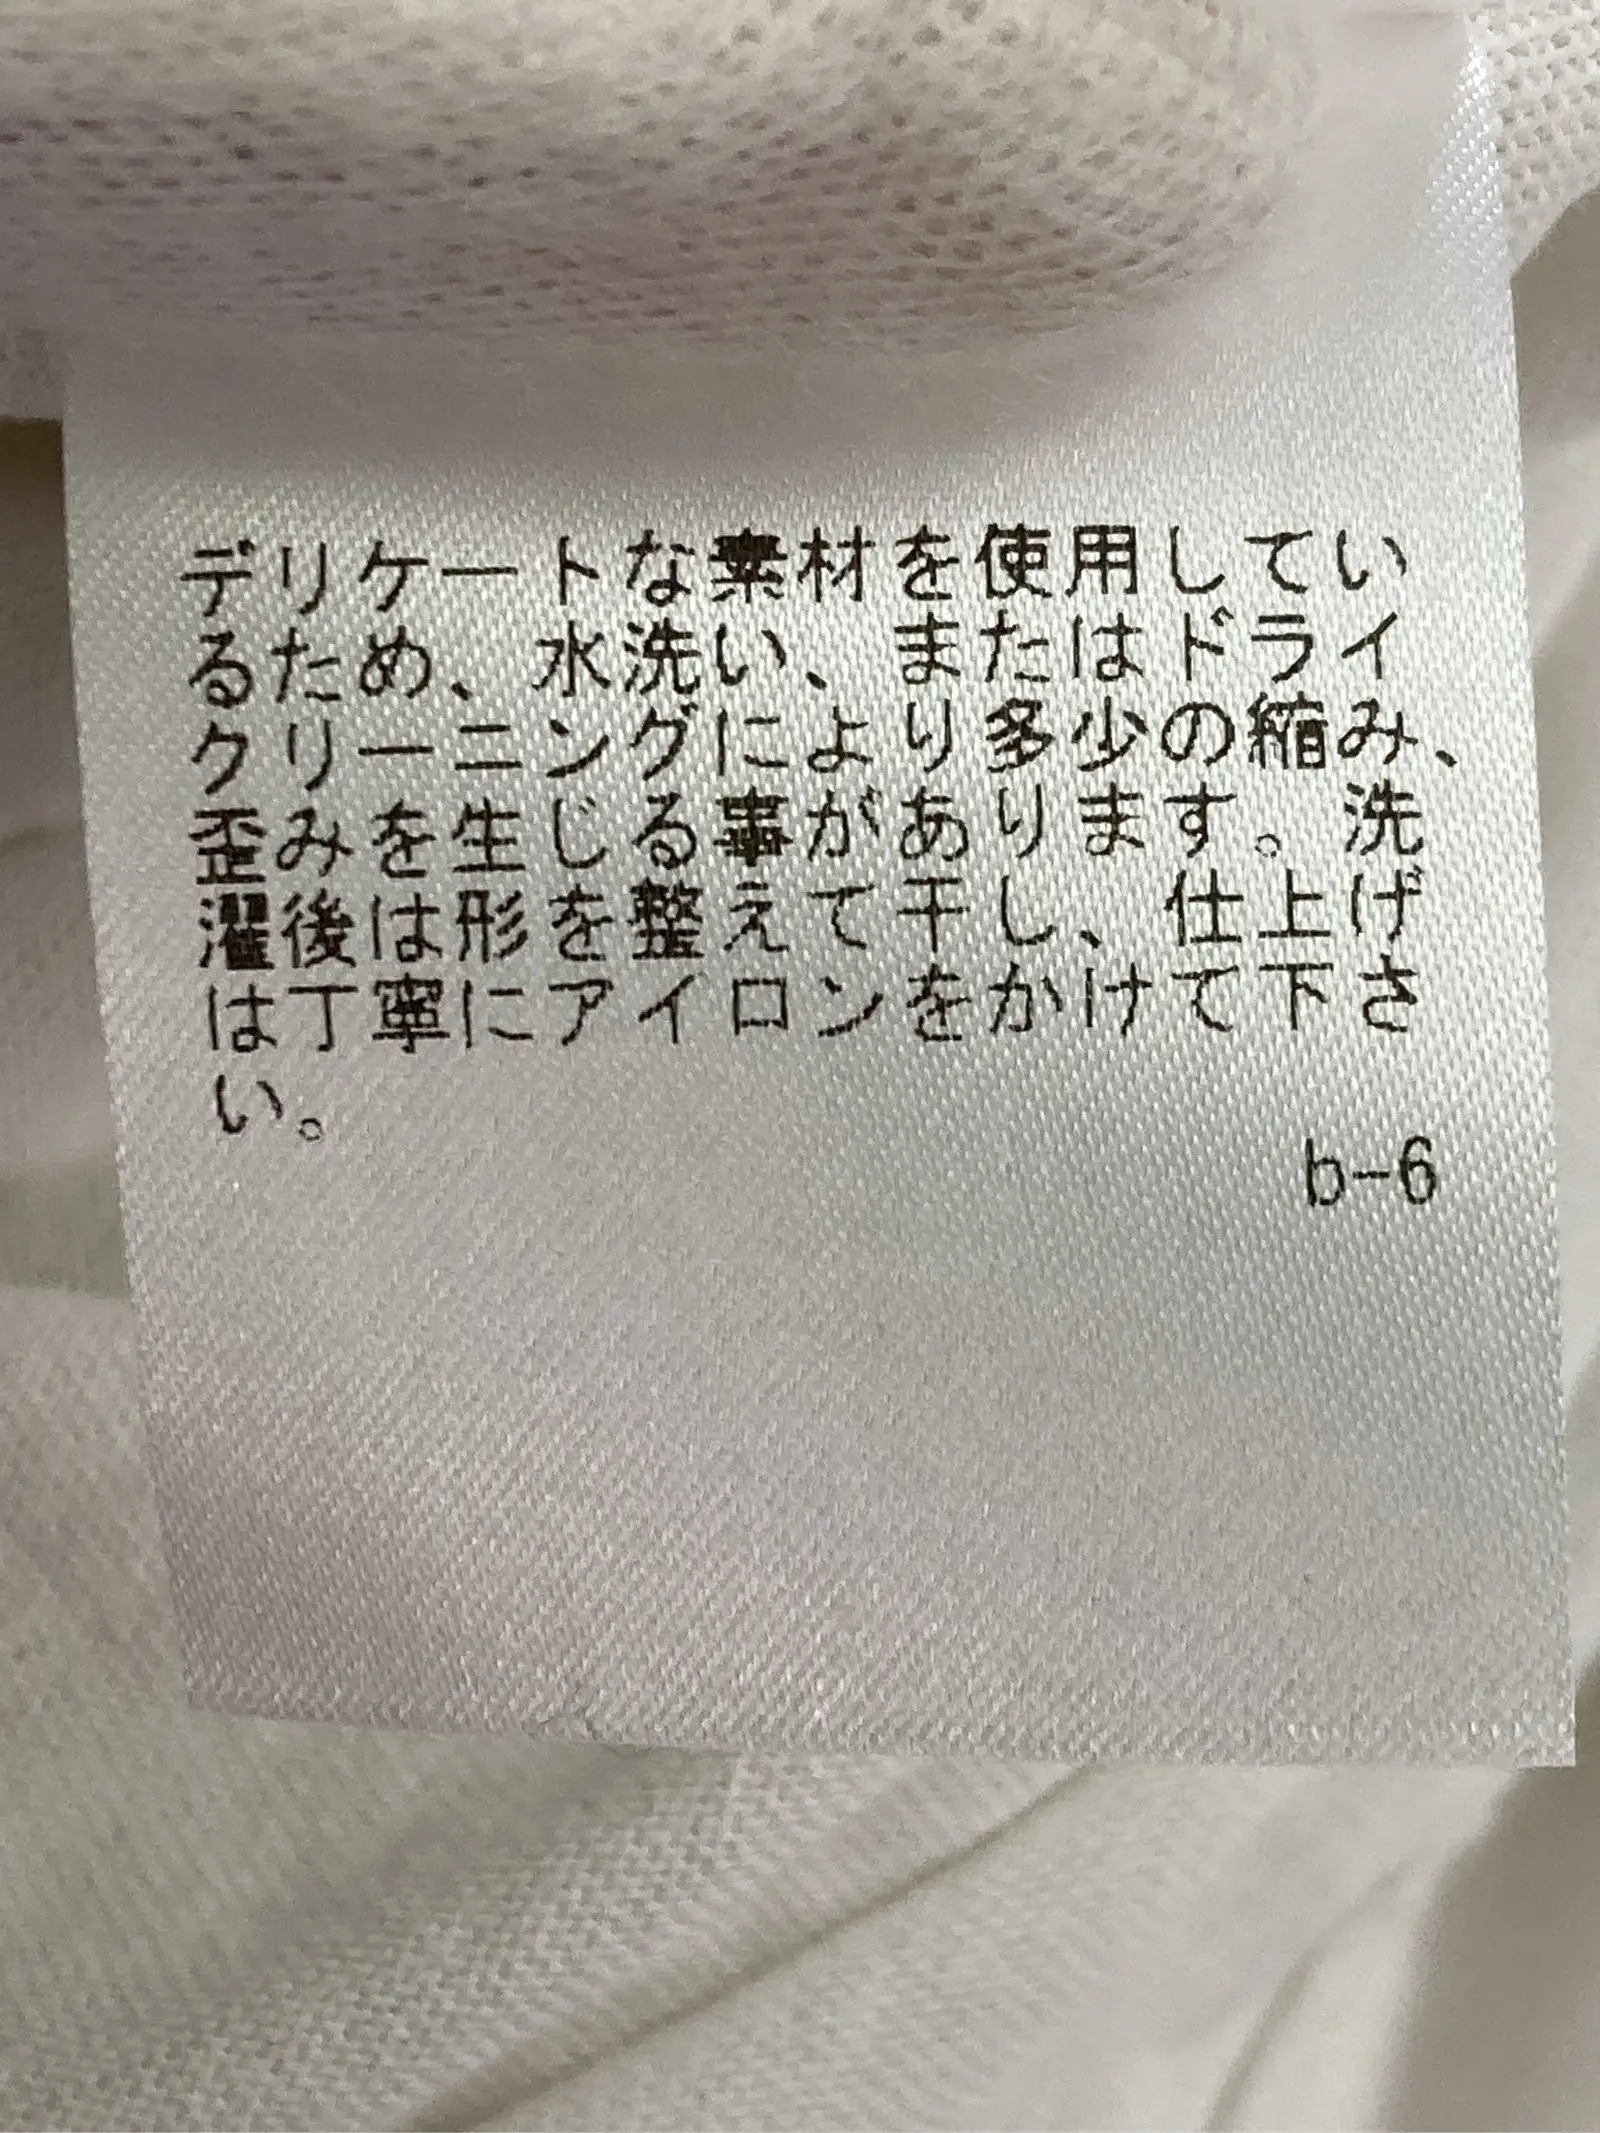 デリケートな素材を使用してい
るため、水洗い、またはドライ
クリーニングにより多少の縮み、
歪みを生じる事があります。洗
濯後は形を整えて干し、仕上げ
は丁寧にアイロンをかけて下さ
い。
b-6